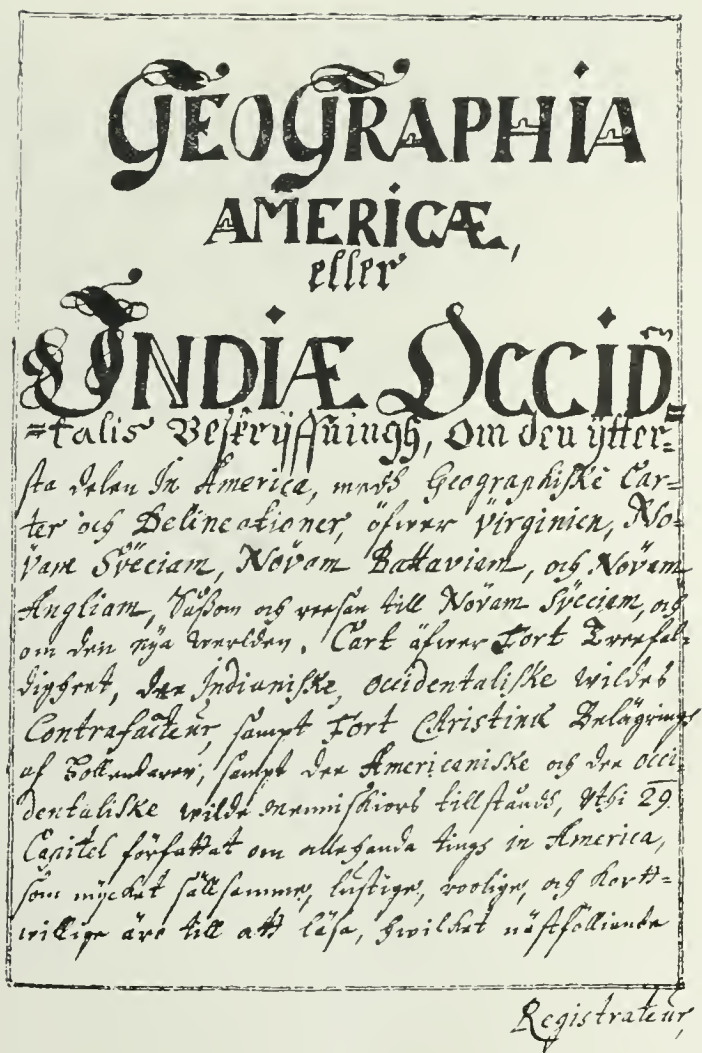 GEOGRAPHIA
AMERICÆ,
eller
INDIÆ OCCIDEN̄
=talis Beskryffningh, Om den ÿtter=
sta delen In America, medh Geographiske Car=
ter och Delineationer, öfwer Virginien, No=
vam Sveciam, Novam Battaviam, och Novam
Angliam, Såßom och reesan till Novam Sveciam, och
om den nÿa werlden. Cart öfwer Fort Treefal=
digheet, dee Indianiske, occidentaliske wildes
Contrafacteur, sampt Fort Christinæ Belägrings
af Hollendaren, sampt dee Americaniske och dee occi=
dentaliske wilde Menniskiors tillståndh, Vthi 29.
Capitel författat om allehanda tings in America,
som mÿcket sällsamme, lustige, roolige, och kortt=
willige äre till att läsa, hwilket näst fölliande
Registrateur,